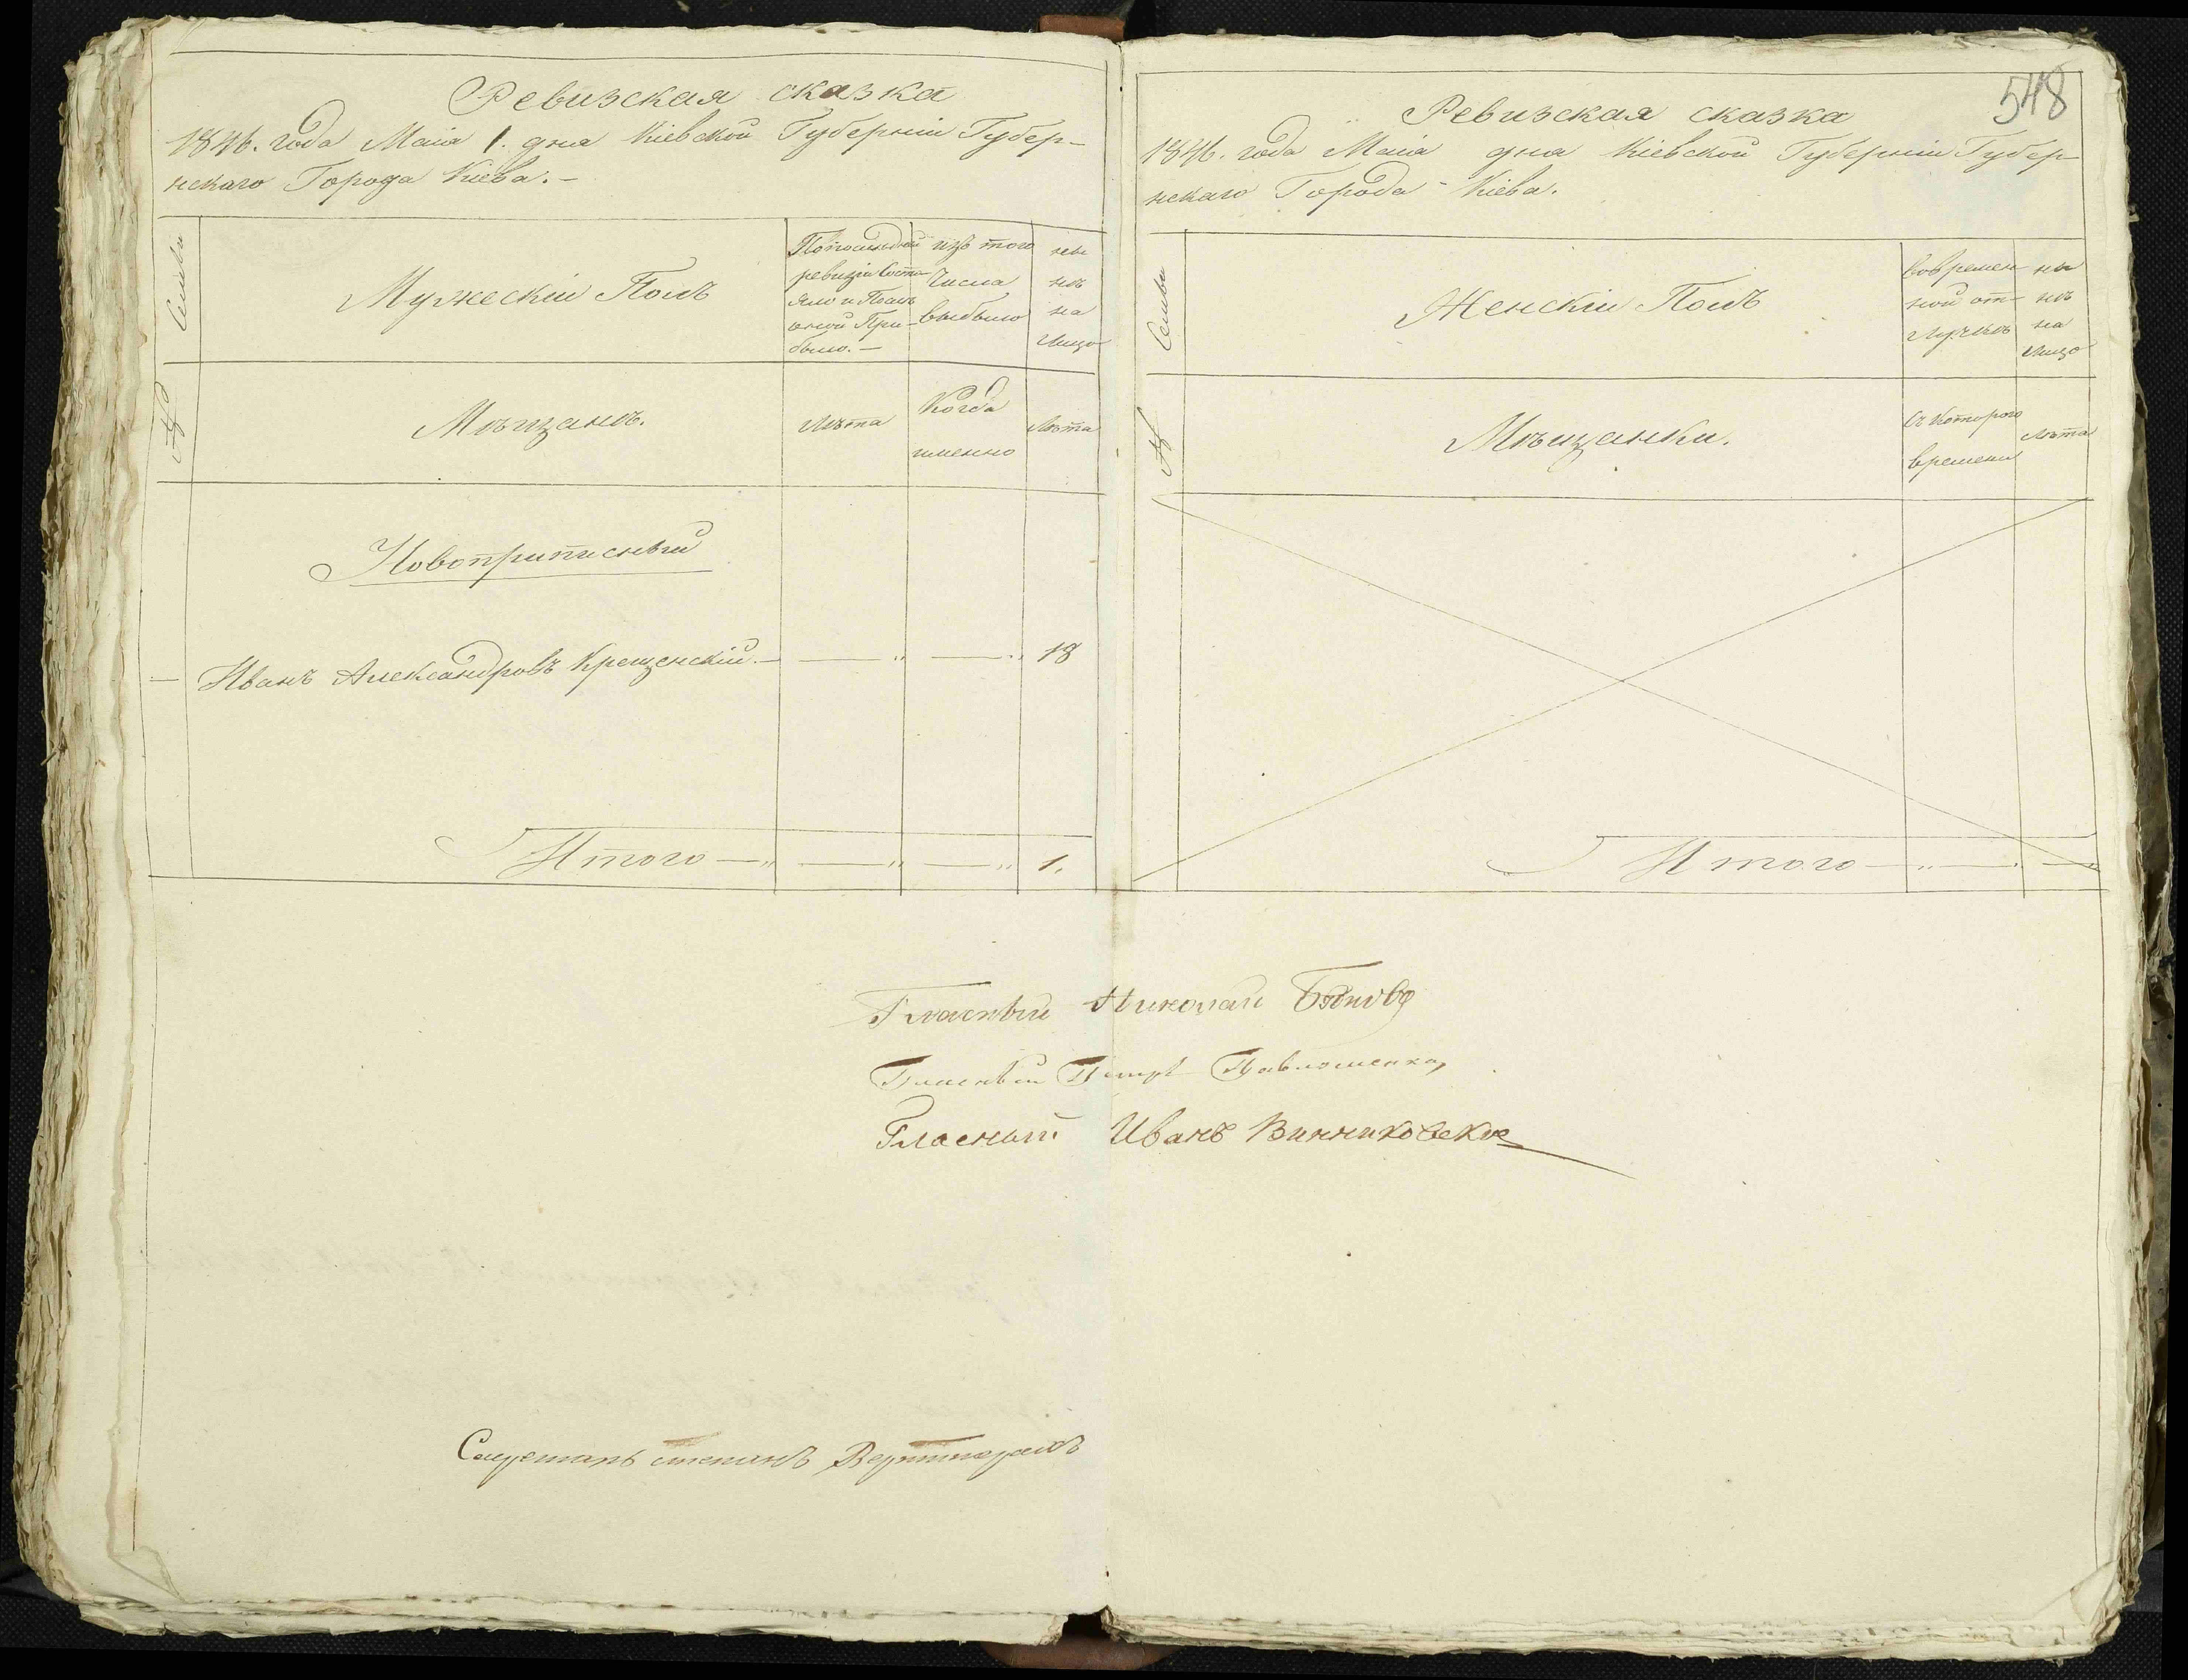 Ревизская сказка
1846. года Маія 1. дня Кіевской Губерніи Губер-
нскаго Города Кіева.-
Семьи
Мужескій Полъ
По последней
ревизіи Состо-
яло и После
оной При-
было.-
изъ того
Числа
выбыло
ны
нѣ
на
Лицо
№
Мѣщанъ.
Лѣта
Когда
именно
Лѣта
Новоприписный
Иванъ Александровъ Крещенскій.- 18
Итого 1.
548
Ревизская сказка
1846. года Маія дня Кіевской Губерніи Губер-
нскаго Города Кіева.
Семьи
Женскій Полъ
Во времен-
ной от-
лучкѣ
ны
нѣ
на
Лицо
№
Мѣщанки.
Съ Котораго
времени
Лѣта
Итого
Гласный Николай
Гласный Петръ Павлошенко
Гласный Иванъ Винниковскій
Степанъ